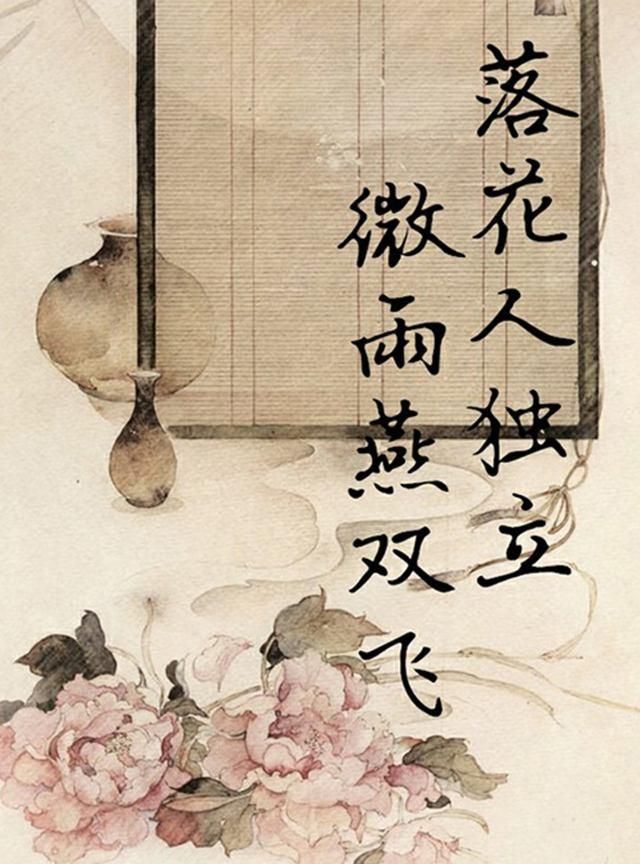 落花人独立
微雨燕双飞